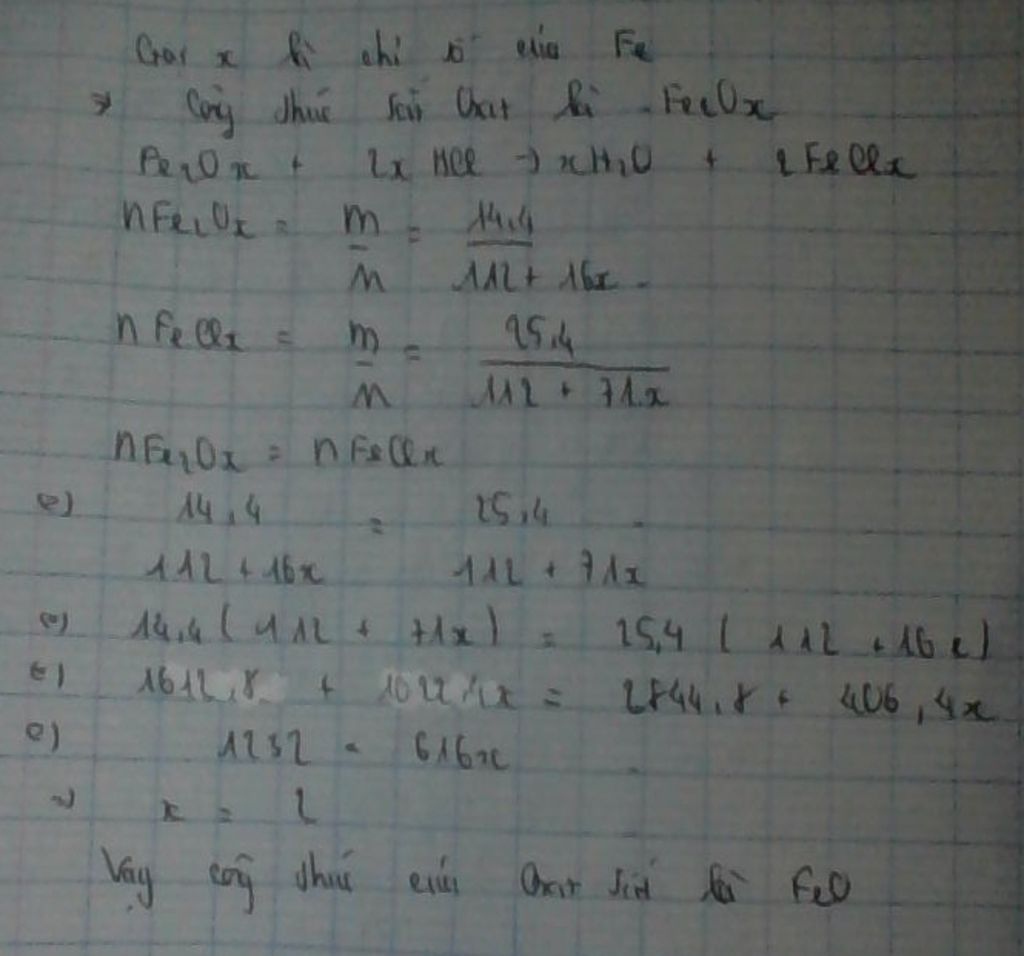 Gọi x là chỉ số của Fe
=> Công thức sắt Oxit là Fe2Ox
Fe2Ox + 2x HCl -> xH2O + 2FeClx
nFe2Ox = m/M = 14,4/112 + 16x
nFeClx = m/M = 25,4/112 + 71x
nFe2Ox = nFeClx
(=) 14,4 = 25,4
112 + 16x 112 + 71x
(=) 14,4 ( 112 + 71x ) = 25,4 ( 112 + 16x )
(=) 1612,8 + 1022,4x = 2844,8 + 406,4x
(=) 1232 = 616x
=> x = 2
Vậy công thức của Oxit sắt là FeO